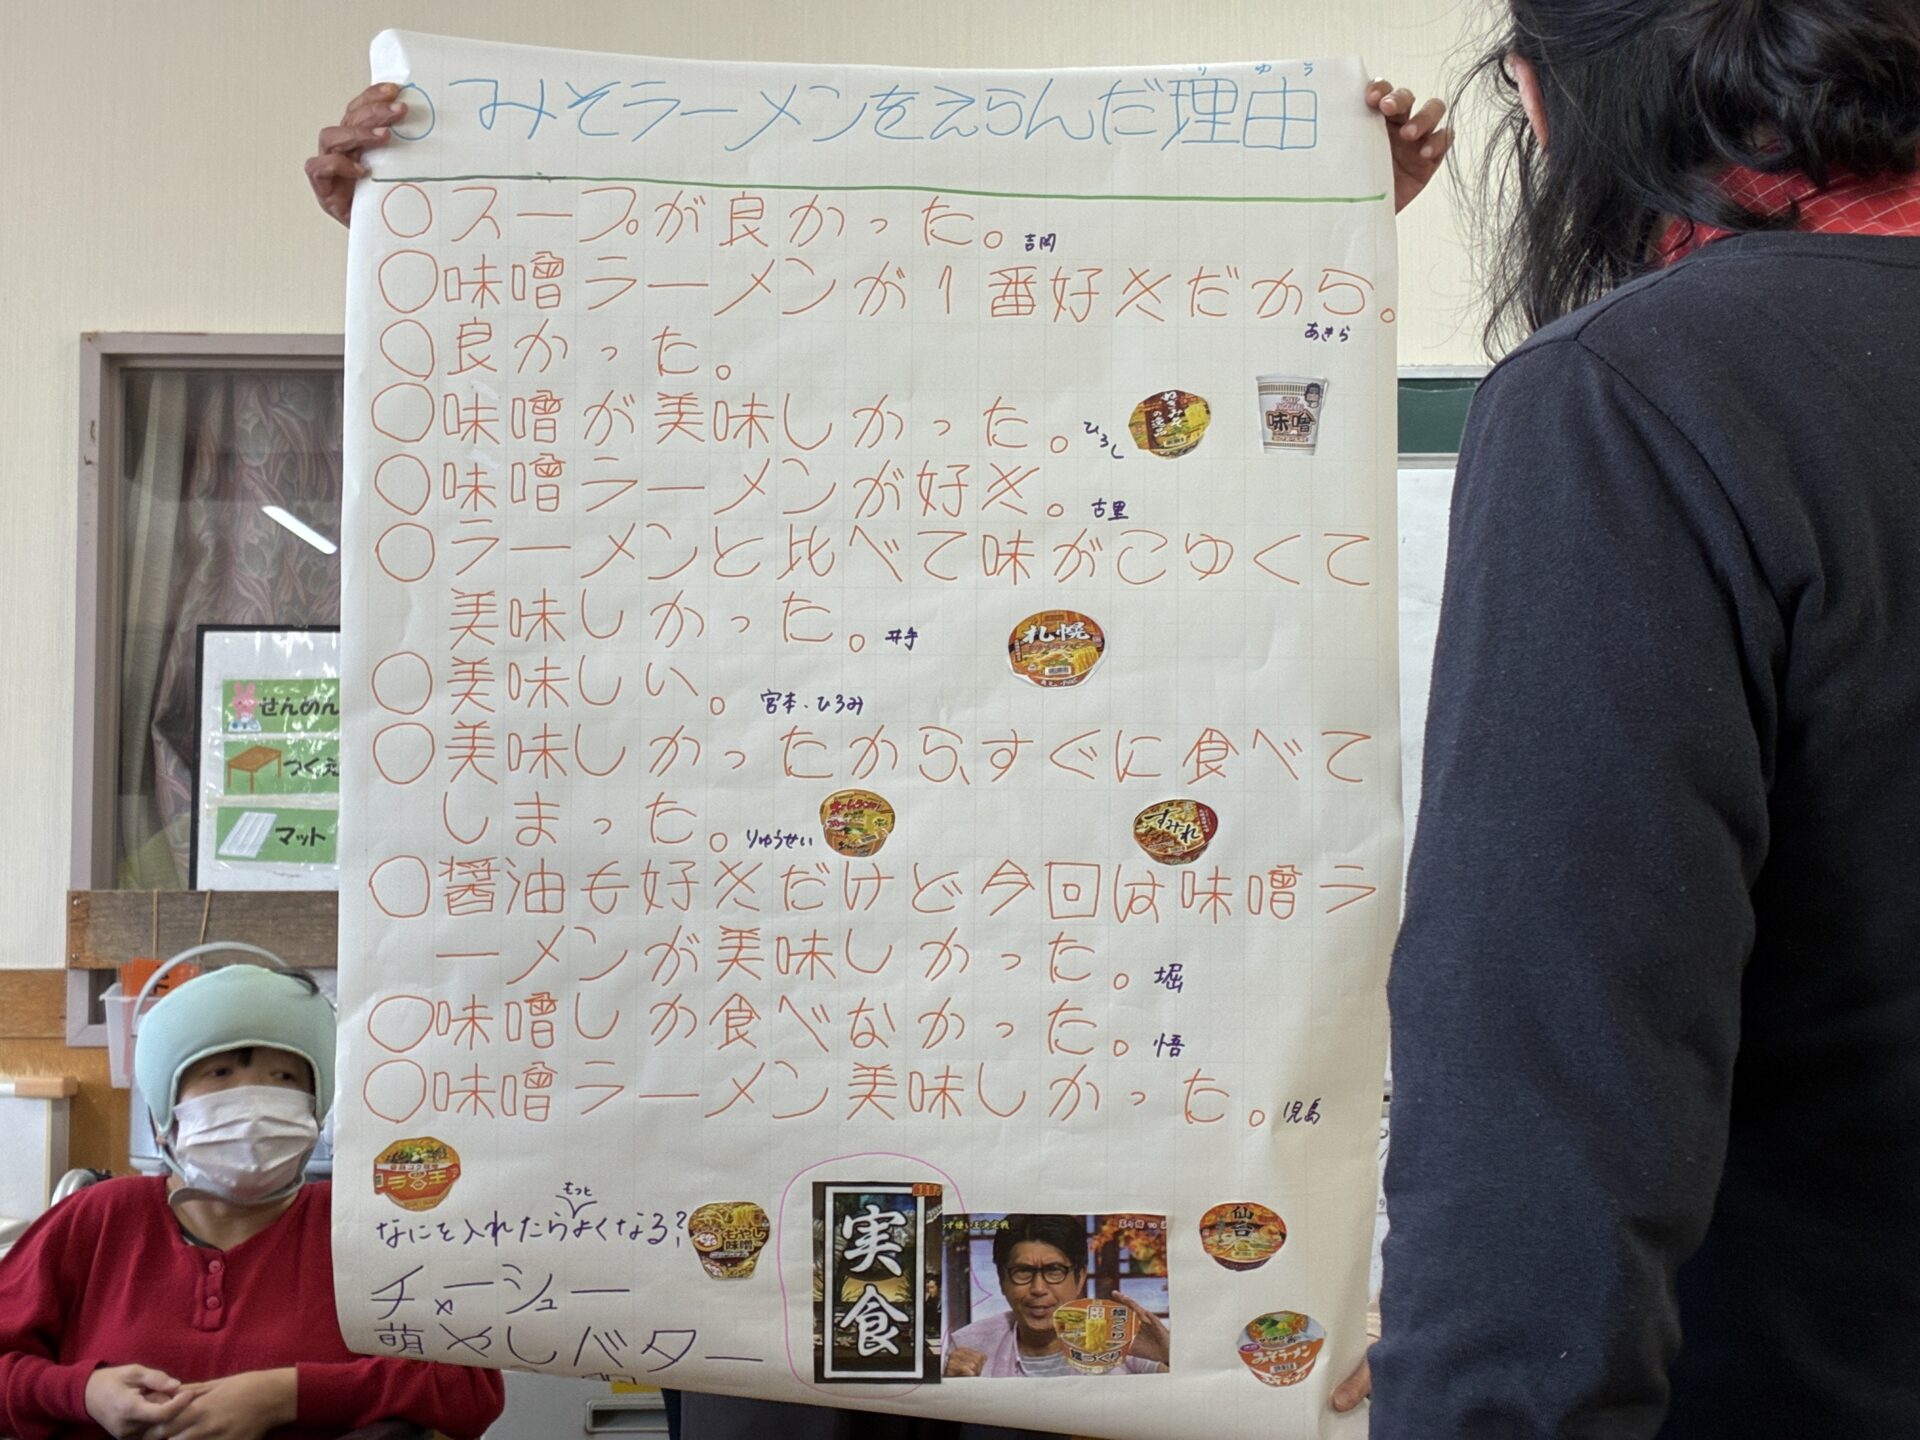 ○みそラーメンをえらんだ理由
りゆう
○スープが良かった。吉岡
○味噌ラーメンが1番好きだから。
あきら
○良かった。
○味噌が美味しかった。ひろし
味噌
○味噌ラーメンが好き。古里
○ラーメンと比べて味がこゆくて
美味しかった。井手
札幌
○美味しい。宮本・ひろみ
○美味しかったから、すぐに食べて
しまった。りゅうせい
すみれ
○醤油も好きだけど今回は味噌ラ
ーメンが美味しかった。堀
○味噌しか食べなかった。悟
○味噌ラーメン美味しかった。児島
ラ王
なにを入れたらもっとよくなる?
もやし
味噌
チャーシュー
萌やしバター
実食
麺づくり
仙台
みそラーメン
せんめん
つくえ
マット